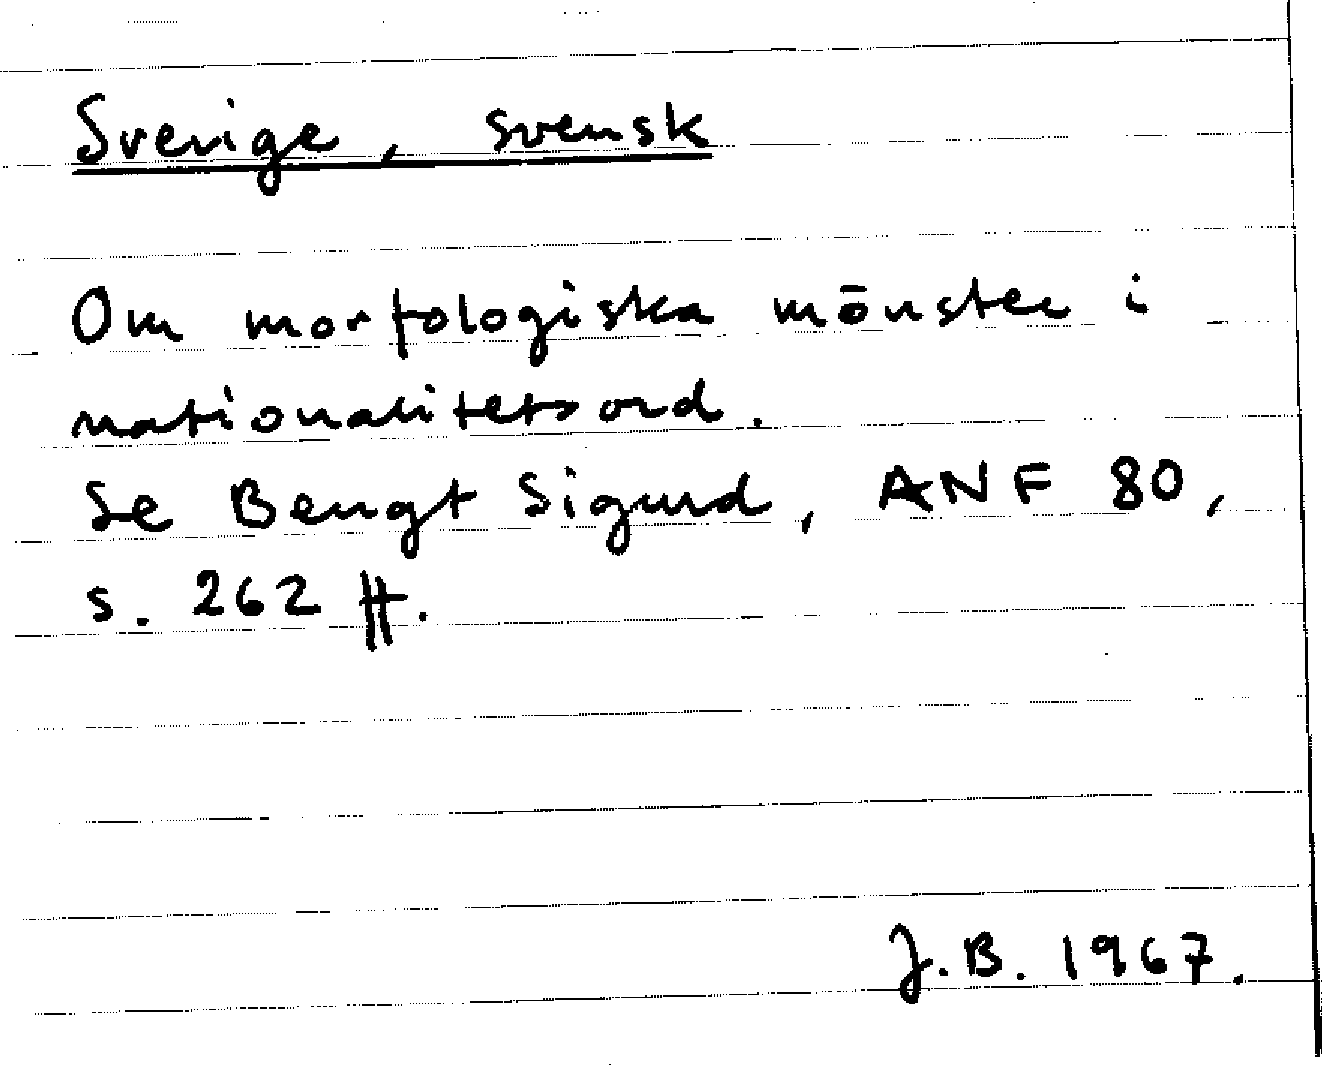 Sverige, svensk
Om morfologiska mönster i
nationalitetsord.
Se Bengt Sigurd, ANF 80,
s. 262 ff.
J.B. 1967.